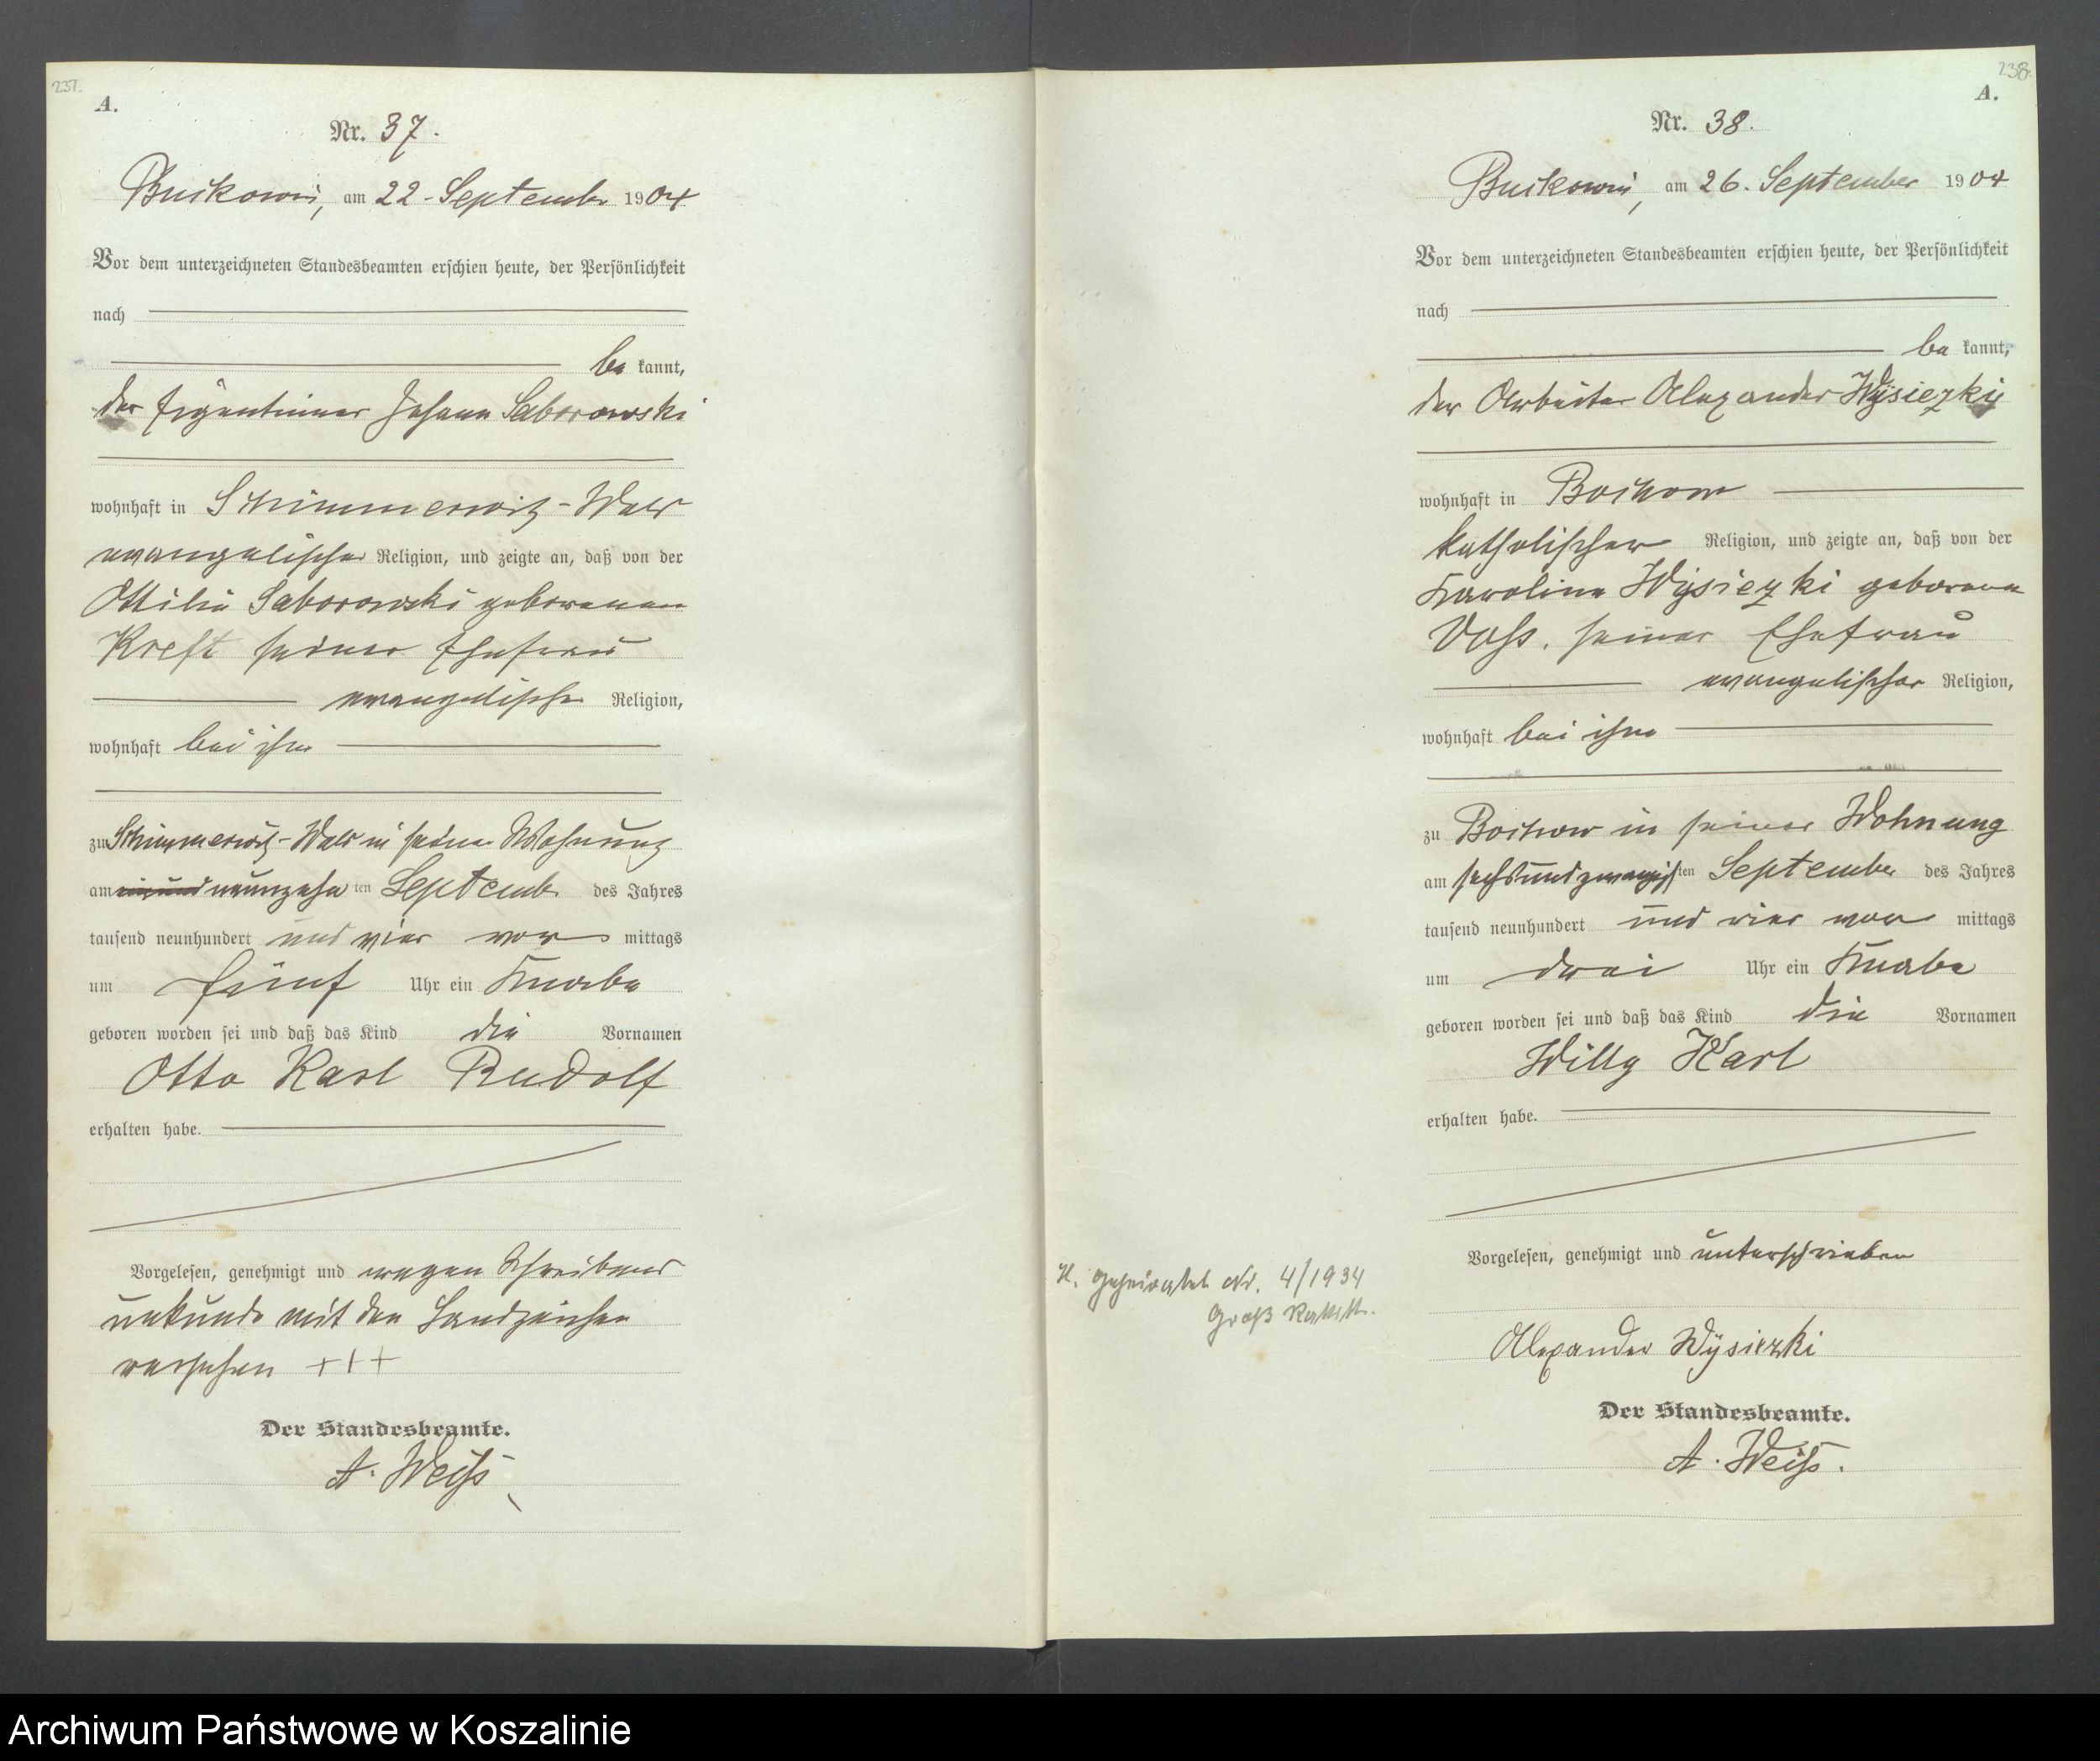 237.
A.
Nr. 37.
Buckowin, am 22. September 1904
Vor dem unterzeichneten Standesbeamten erschien heute, der Persönlichkeit
nach
be kannt,
der Eigentümer Johann Saborowski
wohnhaft in Schimmerwitz-Wald
evangelischer Religion, und zeigte an, daß von der
Ottilie Saborowski geborenen
Kreft seiner Ehefrau
evangelischer Religion,
wohnhaft bei ihm
zu Schimmerwitz-Wald in seiner Wohnung
am neunzehn ten September des Jahres
tausend neunhundert und vier vor mittags
um fünf Uhr ein Knabe
geboren worden sei und daß das Kind die Vornamen
Otto Karl Rudolf
erhalten habe.
Vorgelesen, genehmigt und wegen Schreibens
unkunde mit den Handzeichen
versehen +++
Der Standesbeamte.
A. Weiß
238.
A.
Nr. 38.
Buckowin, am 26. September 1904
Vor dem unterzeichneten Standesbeamten erschien heute, der Persönlichkeit
nach
be kannt,
der Arbeiter Alexander Wysiezki
wohnhaft in Bochow
katholischer Religion, und zeigte an, daß von der
Karoline Wysiezki geborene
Voß, seiner Ehefrau
evangelischer Religion,
wohnhaft bei ihm
zu Bochow in seiner Wohnung
am sechsundzwanzigsten September des Jahres
tausend neunhundert und vier vor mittags
um drei Uhr ein Knabe
geboren worden sei und daß das Kind die Vornamen
Willy Karl
erhalten habe.
Vorgelesen, genehmigt und unterschrieben
geheiratet Nr. 4/1934
Groß
Alexander Wysiezki
Der Standesbeamte.
A. Weiß.
Archiwum Państwowe w Koszalinie